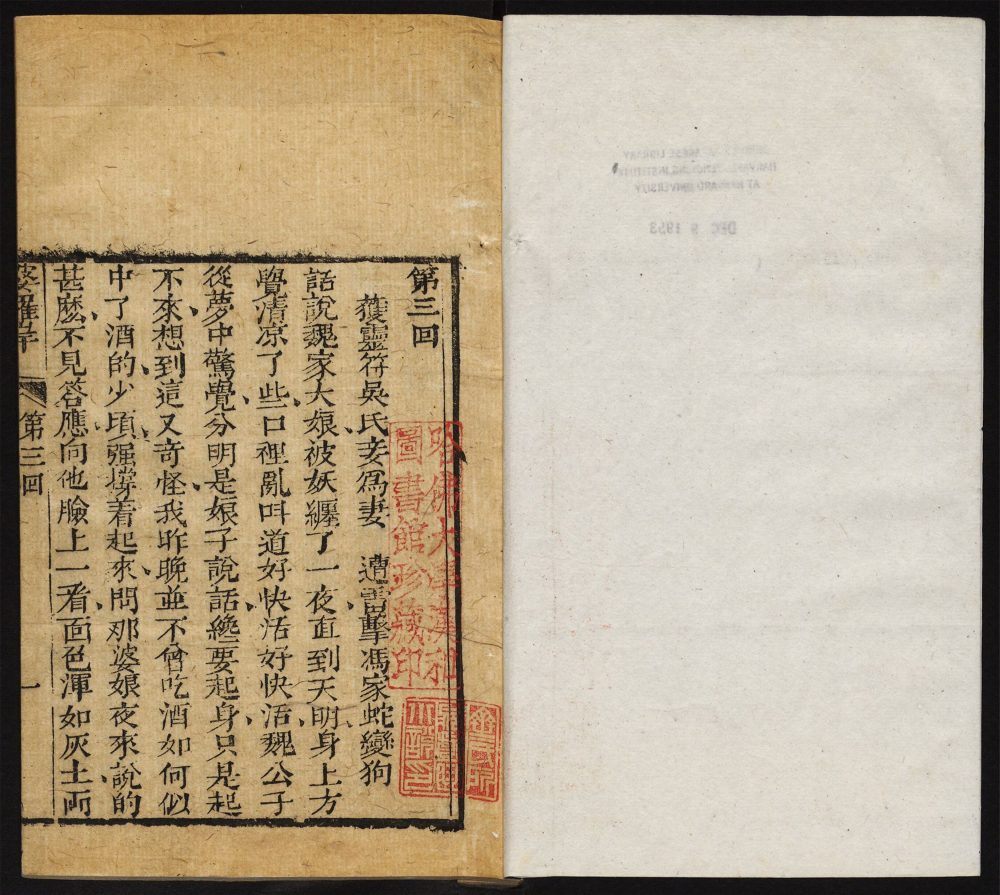 第三回
獲靈符吳氏妾爲妻　遭雷擊馮家蛇變狗
話說魏家大娘被妖纏了一夜直到天明身上方
覺清凉了些口裡亂叫道好快活好快活魏公子
從夢中驚覺分明是娘子說話纔要起身只是起
不來想到這又奇怪我昨晚並不曾吃酒如何似
中了酒的少頃强撐着起來問那婆娘夜來說的
甚麽不見答應向他臉上一看面色渾如灰土兩
婆羅岸
第三回
一
哈佛大學漢和
圖書館珍藏印
DEC 9 1953